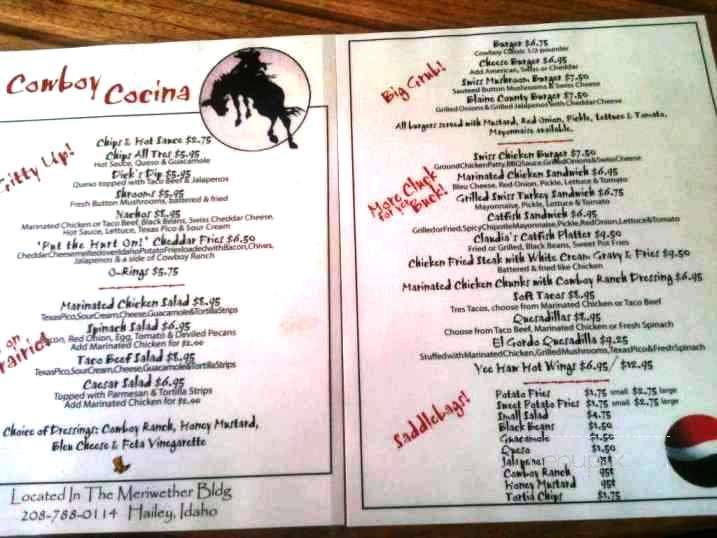 Cowboy Cocina
Gitty Up!
Chips & Hot Sauce $2.75
Chips All Tres $5.95
Hot Sauce, Queso & Guacamole
Dick's Dip $5.95
Queso topped with Taco Beef & Jalapenos
Shrooms $5.95
Fresh Button Mushrooms, battered & fried
Nachos $8.95
Marinated Chicken or Taco Beef, Black Beans, Swiss Cheddar Cheese,
Hot Sauce, Lettuce, Texas Pico & Sour Cream
'Put the Hurt On!' Cheddar Fries $6.50
CheddarCheesemeltedoverIdahoPotatoFriesloadedwithBacon,Chives,
Jalapenos & a side of Cowboy Ranch
O-Rings $5.75
on
Marinated Chicken Salad $8.95
TexasPico,SourCream,Cheese,Guacamole&TortillaStrips
Spinach Salad $6.95
Bacon, Red Onion, Egg, Tomato & Deviled Pecans
Add Marinated Chicken for $2.00
Taco Beef Salad $8.95
TexasPico,SourCream,Cheese,Guacamole&TortillaStrips
Caesar Salad $6.95
Topped with Parmesan & Tortilla Strips
Add Marinated Chicken for $2.00
Choice of Dressings: Cowboy Ranch, Honey Mustard,
Bleu Cheese & Feta Vinegarette
Located In The Meriwether Bldg
208-788-0114 Hailey, Idaho
Big Grub!
Burger $6.75
Cowboy Classic 1/3 pounder
Cheese Burger $6.95
Add American, Swiss or Cheddar
Swiss Mushroom Burger $7.50
Sauteed Button Mushrooms & Swiss Cheese
Blaine County Burger $7.50
Grilled Onions & Grilled Jalapenos with Cheddar Cheese
All burgers served with Mustard, Red Onion, Pickle, Lettuce & Tomato,
Mayonnaise available.
More Cluck
for your
Buck!
Swiss Chicken Burger $7.50
GroundChickenPatty,BBQSauce,GrilledOnions&SwissCheese
Marinated Chicken Sandwich $6.95
Bleu Cheese, Red Onion, Pickle, Lettuce & Tomato
Grilled Swiss Turkey Sandwich $6.75
Mayonnaise, Pickle, Lettuce & Tomato
Catfish Sandwich $6.95
GrilledorFried,SpicyChipotleMayonnaise,Pickle,RedOnion,Lettuce&Tomato
Claudia's Catfish Platter $9.50
Fried or Grilled, Black Beans, Sweet Pot Fries
Chicken Fried Steak with White Cream Gravy & Fries $9.50
Battered & fried like Chicken
Marinated Chicken Chunks with Cowboy Ranch Dressing $6.95
Soft Tacos $8.95
Tres Tacos, choose from Marinated Chicken or Taco Beef
Quesadillas $8.95
Choose from Taco Beef, Marinated Chicken or Fresh Spinach
El Gordo Quesadilla $9.25
StuffedwithMarinatedChicken,GrilledMushrooms,TexasPico&FreshSpinach
Yee Haw Hot Wings $6.95/ $12.95
Saddlebags!
Potato Fries $1.75 small $2.75 large
Sweet Potato Fries $1.75 small $2.75 large
Small Salad $4.75
Black Beans $1.50
Guacamole $1.50
Queso $1.50
Jalapenos 95¢
Cowboy Ranch 95¢
Honey Mustard 95¢
Tortia Chips $1.75